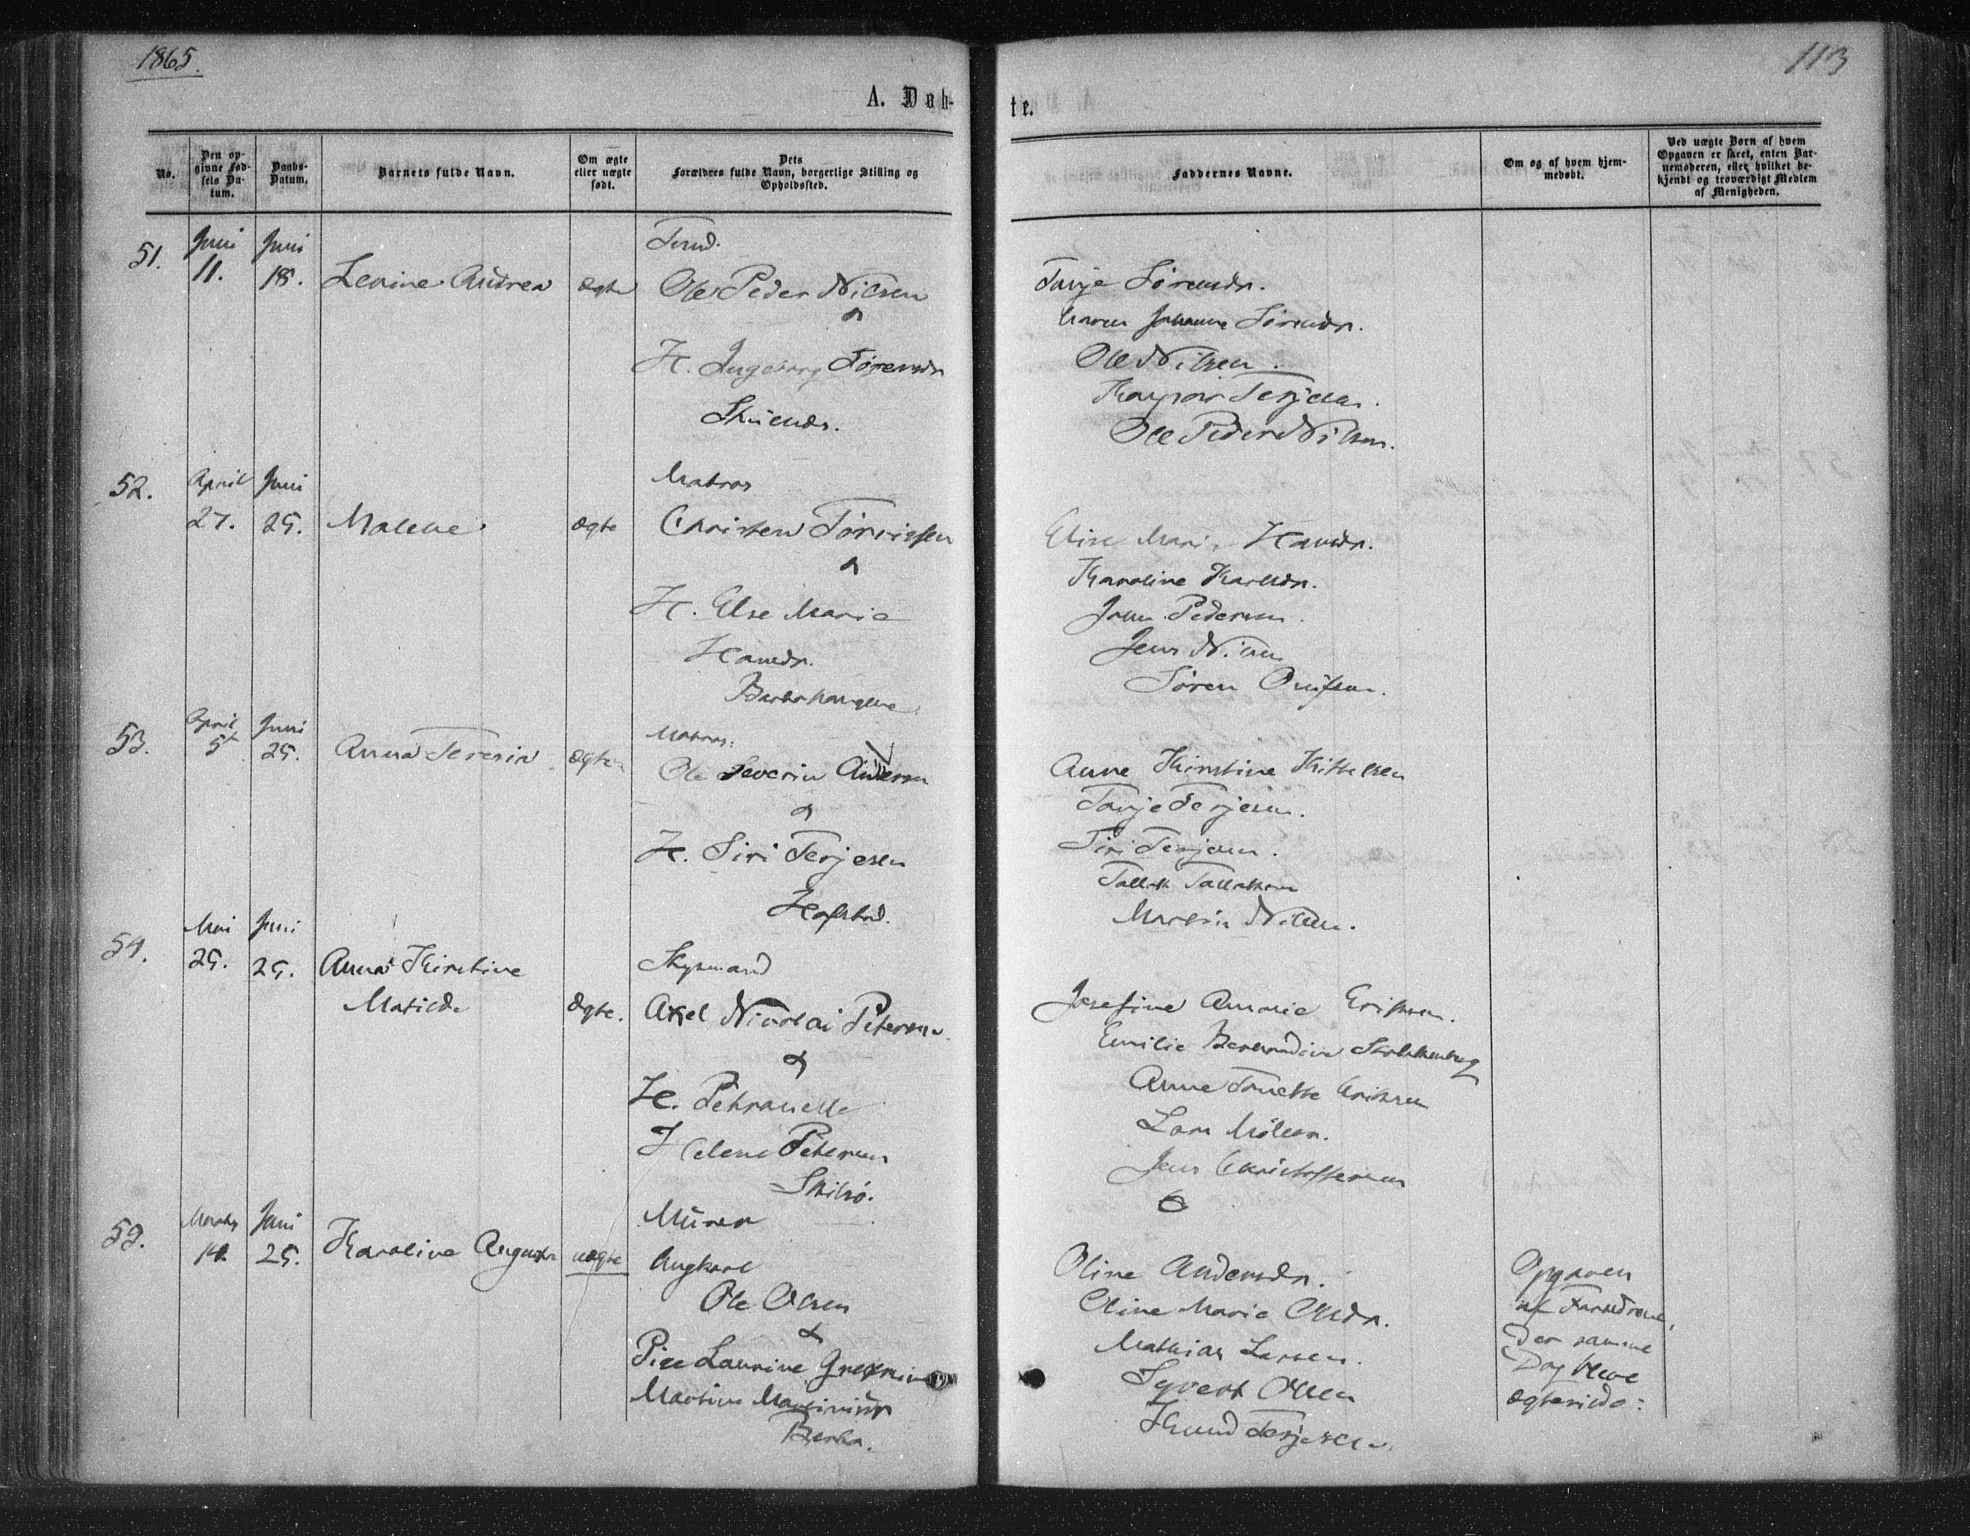 1865.
113
A. Daab-
te.
No.
Den op-
givne Fød-
sels Da-
tum.
Daabs-
Datum.
Barnets fulde Navn.
Om ægte
eller uægte
født.
Dets
Forældres fulde Navn, borgerlige Stilling og
Opholdssted.
Faddernes Navne.
Om og af hvem hjem-
medøbt.
Ved uægte Børn af hvem
Opgaven er skeet, enten Bar-
nemoderen, eller hvilket be-
kjendt og troværdigt Medlem
af Menigheden.
51.
Juni
11.
Juni
18.
Levine Andrea
ægte
Ole Peder Nilsen
&
H. Ingeborg Sørensdr
Tarje Sørensdr.
Karen Johanne Sørensdr.
Ole Nilsen.
Terjesen.
Ole Peder Nilsen.
52.
April
27.
Juni
25.
Malene
ægte
Matros
Christen Tørrissen
&
H. Else Marie
Hansdr.
Elise Marie Hansdr.
Karoline Karlsdr.
Pedersen.
Jens Nilsen
Søren
53.
April
5
Juni
25.
Anna Teresia
ægte
Matros:
Ole Severin Andersen
&
H. Siri Terjesen
Anne Kirstine Kittelsen
Tarje Terjesen.
Siri Terjesen.
Tallak Tallaksen
Martin Nilsen.
54.
Mai
25.
Juni
25.
Anna Kirstine
Matilde
ægte.
Axel Nicolai Petersen
&
H. Petranelle
Helene Petersen
Skilsø.
Josefine Amalie Eriksen.
Emilie Bernandine
Anne Eriksen
Lars
Jens Christoffersen
55.
Marts
14.
Juni
25.
Karoline Augusta
uægte
Murer
Ungkarl
Ole Olsen
&
Pige Laurine
Oline Andersdr.
Oline Marie Olsdr.
Mathias Larsen.
Syvert Olsen
Knud Terjesen
Opgaven
af Forældrene,
der samme
Dag bleve
ægteviede.